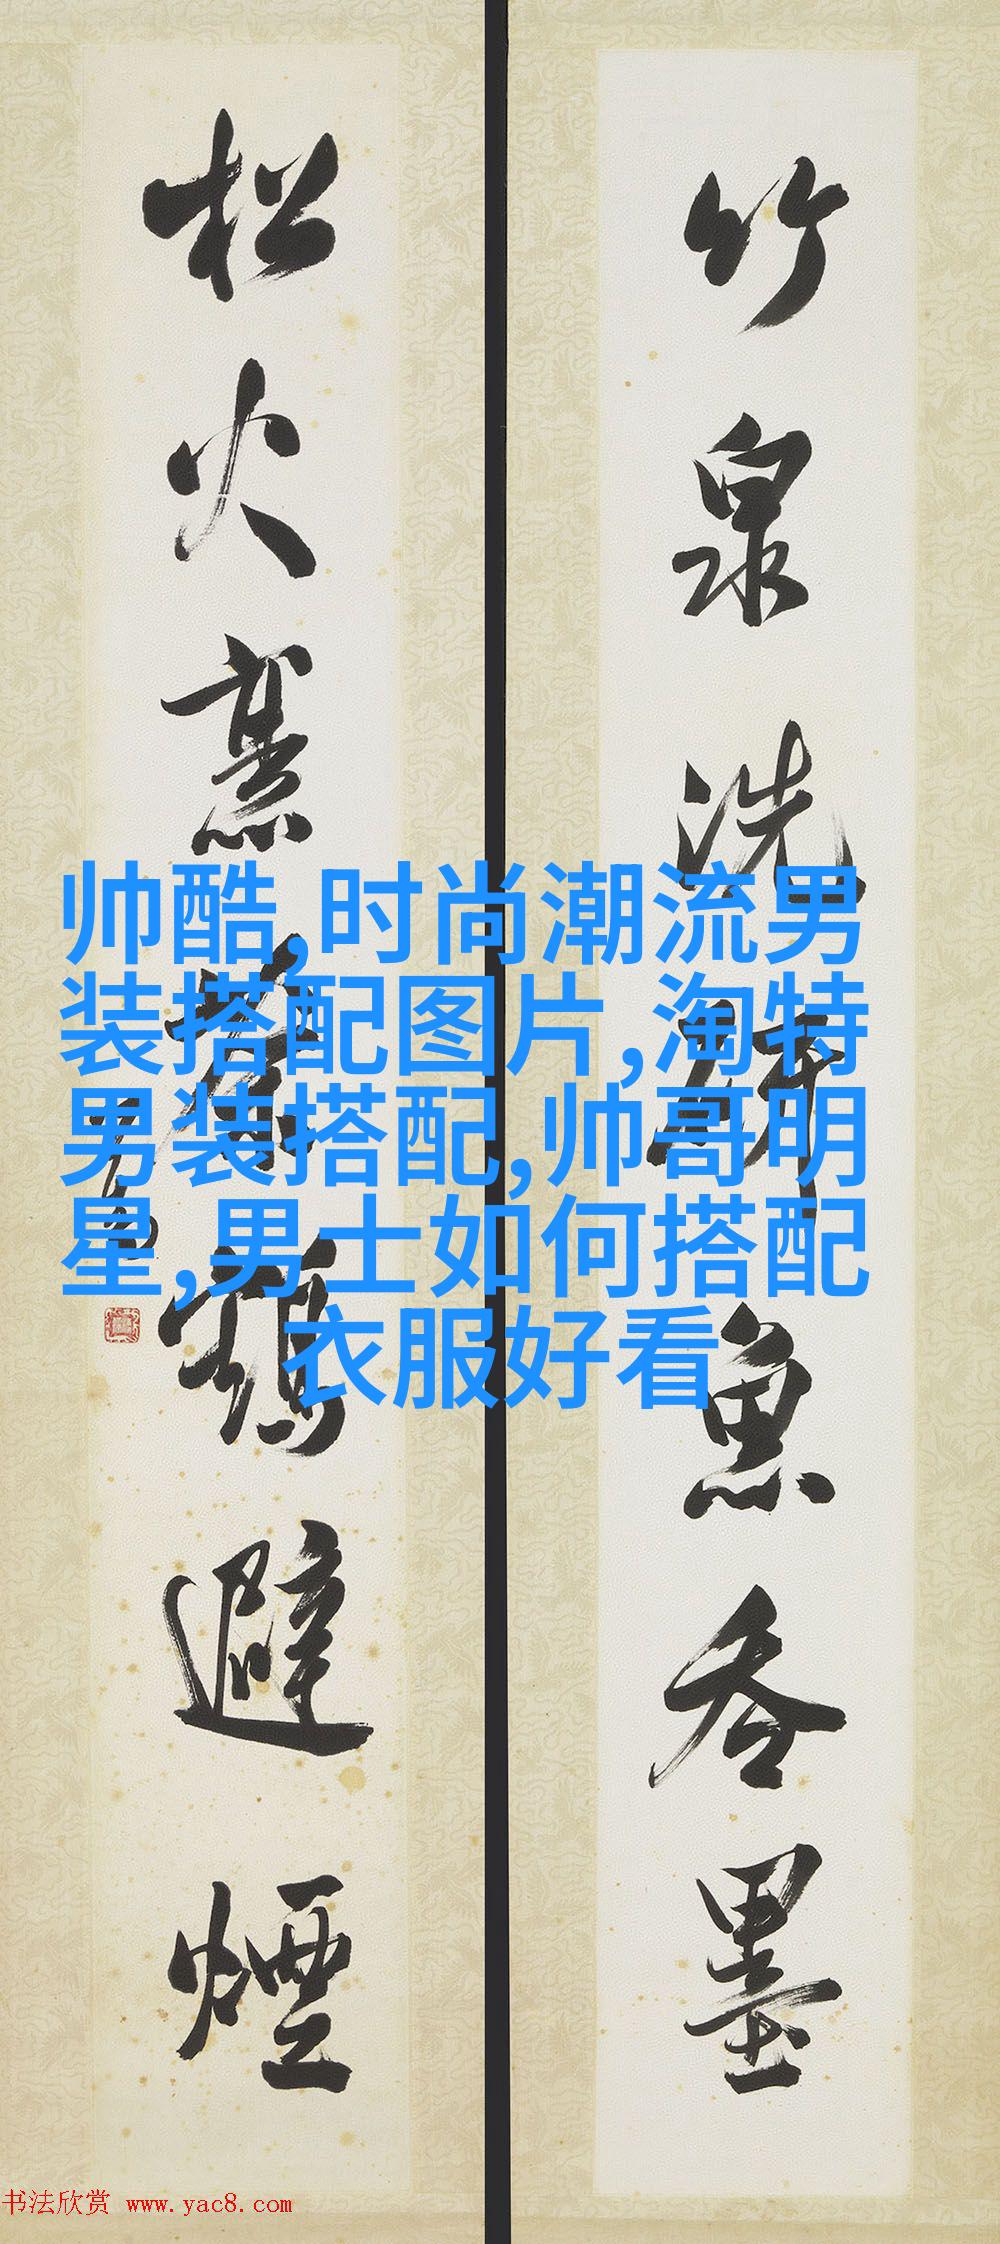 竹泉洗魚吞墨
松火鶴避煙
帅酷,时尚潮流男
装搭配图片,淘特
男装搭配,帅哥明
星,男士如何搭配
衣服好看
书法欣赏 www.yac8.com